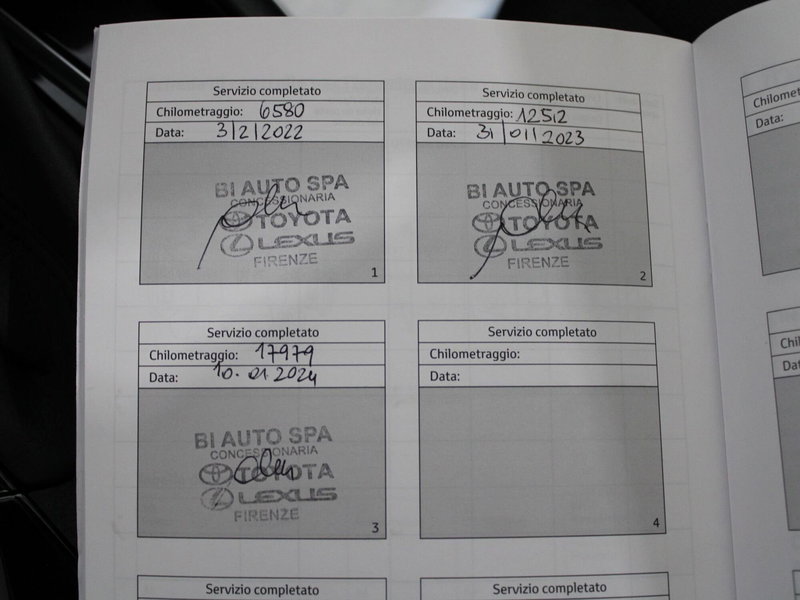 Servizio completato
Chilometraggio: 6580
Data: 3/2/2022
BI AUTO SPA
CONCESSIONARIA
TOYOTA
LEXUS
FIRENZE
1
Servizio completato
Chilometraggio: 12512
Data: 31/01/2023
BI AUTO SPA
CONCESSIONARIA
TOYOTA
LEXUS
FIRENZE
2
Servizio completato
Chilometraggio: 17979
Data: 10.01.2024
BI AUTO SPA
CONCESSIONARIA
TOYOTA
LEXUS
FIRENZE
3
Servizio completato
Chilometraggio:
Data:
4
Servizio completato
Servizio completato
Data: